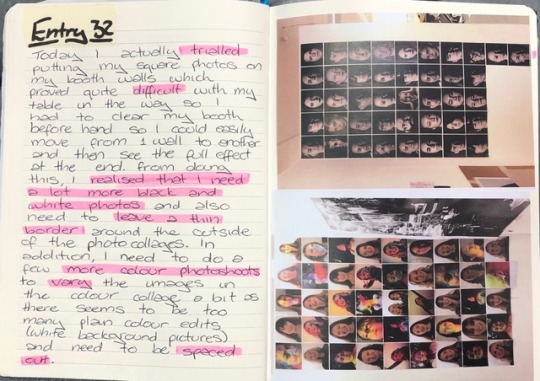 Entry 32
Today I actually trialled
putting my square photos on
my booth walls which
proved quite difficult with my
table in the way so I
had to clear my booth
before hand so I could easily
move from 1 wall to another
and then see the full effect
at the end. From doing
this, I realised that I need
a lot more black and
white photos and also
need to leave a thin
border around the outside
of the photo collages. In
addition, I need to do a
few more colour photoshoots
to vary the images in
the colour collage a bit as
there seems to be too
many plain colour edits
(white background pictures)
and need to be spaced
out.